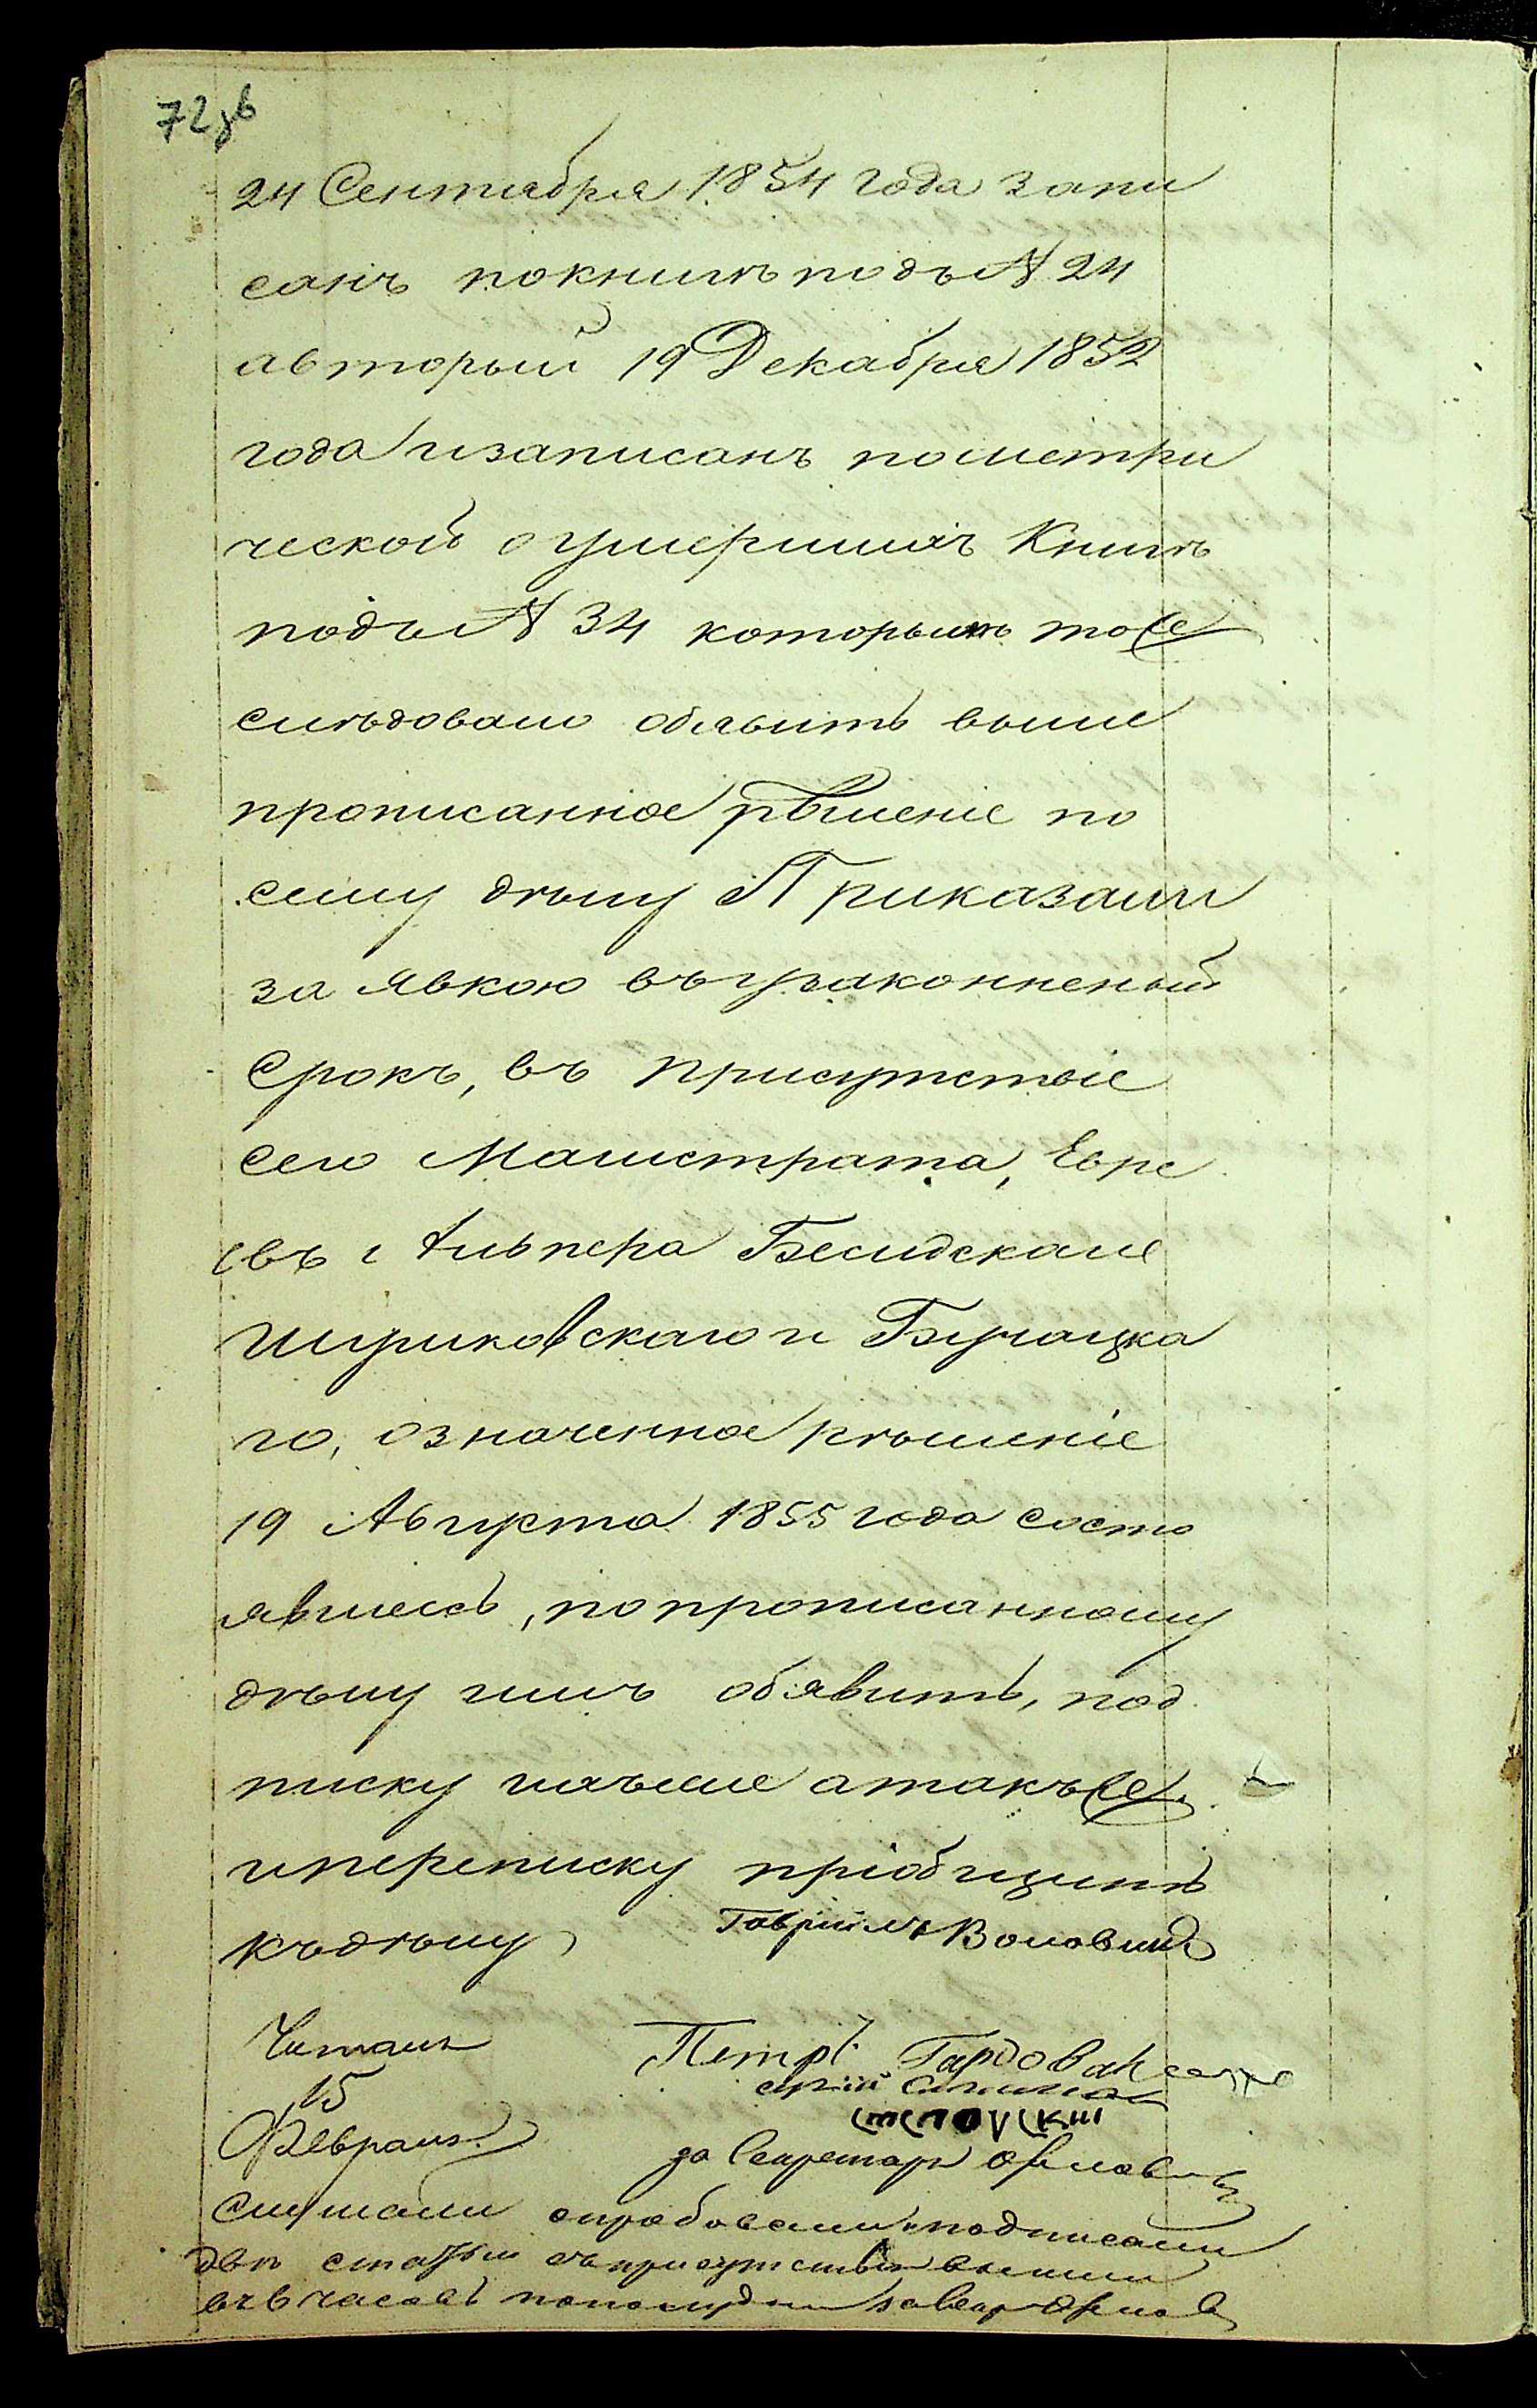 72 зв
24 Сентября 1854 года запи
санъ покнигѣ подъ № 24
авторый 19 Декабря 1852
года изаписанъ пометри
ческой о умершихъ Книгѣ
подъ № 34 которымъ то
слѣдовало обявить выше
прописанное рѣшеніе по
сему дѣлу Приказали
за явкою въ узаконненый
Срокъ, въ присутствіе
сего Магистрата, Евре
евъ Альпера Белидскаго
Шуриковскаго и Бучацка
го, означенное рѣшеніе
19 Августа 1855 года состо
явшеесь, по прописанному
дѣлу имъ обявить, под
писку ихъ атакъ
ипереписку пріобщить
къдѣлу
Гавріилъ Воловик
Читалъ
Петръ
15
Февраля
за Секретаря Орловъ
Слушали опробовали и подписали
двѣ статьи въ присутствіи вышли
въ 6 часовъ пополудни за Секр Орловъ